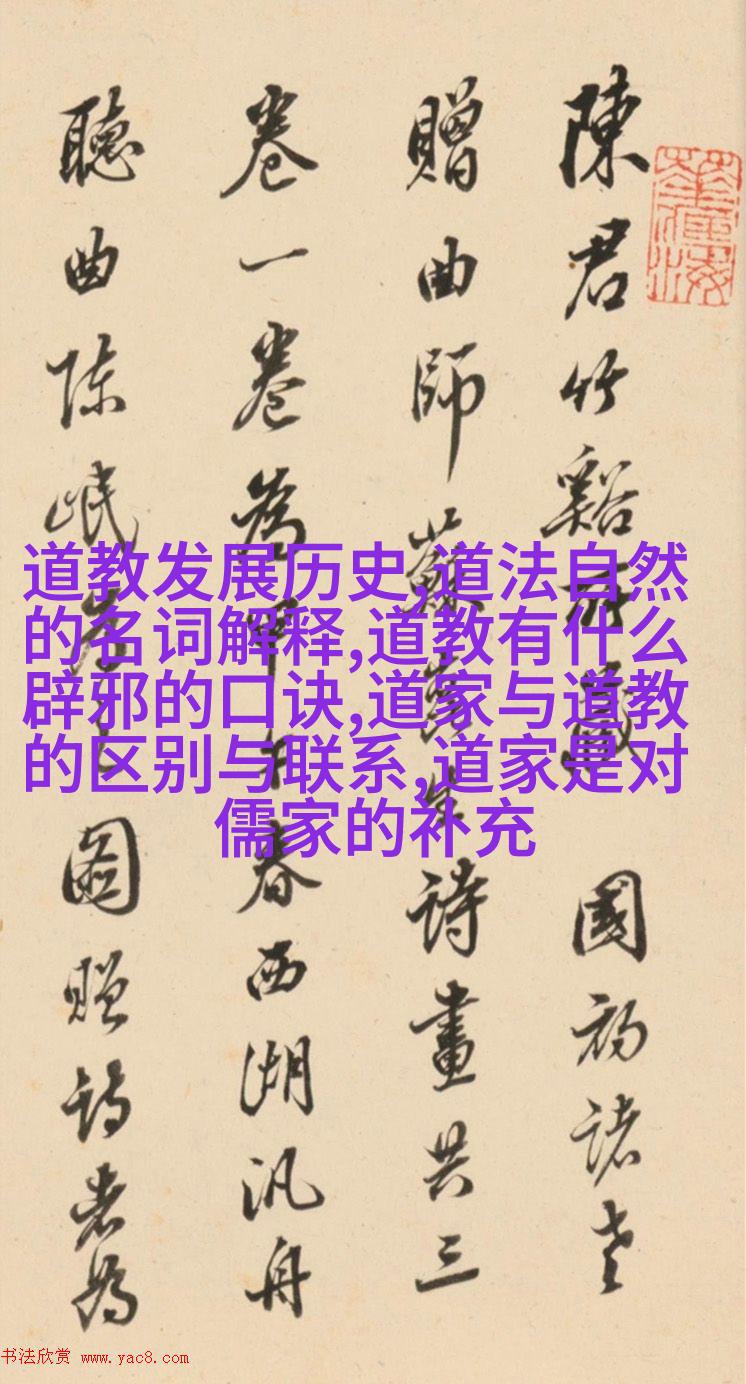 陳君竹谿所藏 國初諸老
贈曲師蘇崑生詩畫共三
卷一卷為甲午春西湖汎舟
聽曲陳岷為之圖贈詩者為
道教发展历史,道法自然
的名词解释,道教有什么
辟邪的口诀,道家与道教
的区别与联系,道家是对
儒家的补充
书法欣赏 www.yac8.com